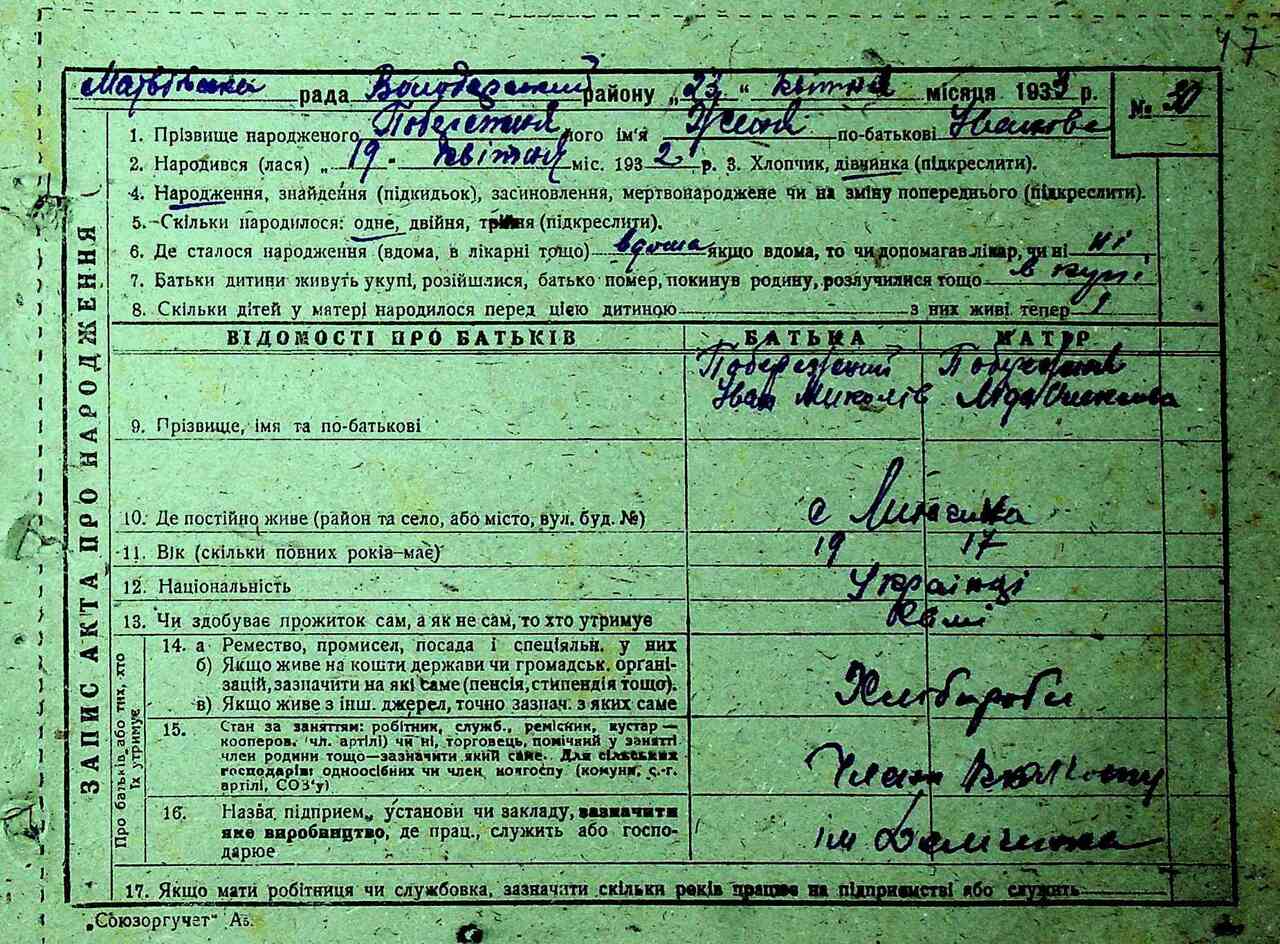 17
рада Володарський району „23“ квітня місяця 1933 р. № 30
1. Прізвище народженого його ім'я Ксеня по-батькові Іванова
2. Народився (лася) „19 квітня міс. 1932 р. 3. Хлопчик, дівчинка (підкреслити).
4. Народження, знайдення (підкидьок), засиновлення, мертвонароджене чи на зміну попереднього (підкреслити).
5. Скільки народилося: одне, двійня, трійня (підкреслити).
6. Де сталося народження (вдома, в лікарні тощо) вдома якщо вдома, то чи допомагав лікар, чи ні ні
7. Батьки дитини живуть укупі, розійшлися, батько помер, покинув родину, розлучилися тощо в купі
8. Скільки дітей у матері народилося перед цією дитиною з них живі тепер 1
ЗАПИС АКТА ПРО НАРОДЖЕННЯ (
ВІДОМОСТІ ПРО БАТЬКІВ БАТЬКА МАТЕР
Побережний
Іван Миколів
9. Прізвище, імя та по-батькові
10. Де постійно живе (район та село, або місто, вул. буд. №) с
11. Вік (скільки повних років-має) 19 17
12. Національність Українці
13. Чи здобуває прожиток сам, а як не сам, то хто утримує Самі
Про батьків, або тих, хто їх утримує
14. а Ремество, промисел, посада і спеціяльн. у них
б) Якщо живе на кошти держави чи громадськ. органі-
зацій, зазначити на які саме (пенсія, стипендія тощо).
в) Якщо живе з інш. джерел, точно зазнач. з яких саме
Хлібороби
15. Стан за заняттям: робітник, служб., ремісник, кустар —
кооперов. (чл. артілі) чи ні, торговець, помічний у занятті
член родини тощо—зазначити який саме. Для сільських
господарів: одноосібних чи член, колгоспу (комуни, с.-г.
артілі, СОЗ'у)
Члени Колгоспу
16. Назва підприєм., установи чи закладу, зазначити
яке виробництво, де прац., служить або госпо-
дарює
ім
17. Якщо мати робітниця чи службовка, зазначити скільки років працює на підприємстві або служить
„Союзоргучет“ Аз.